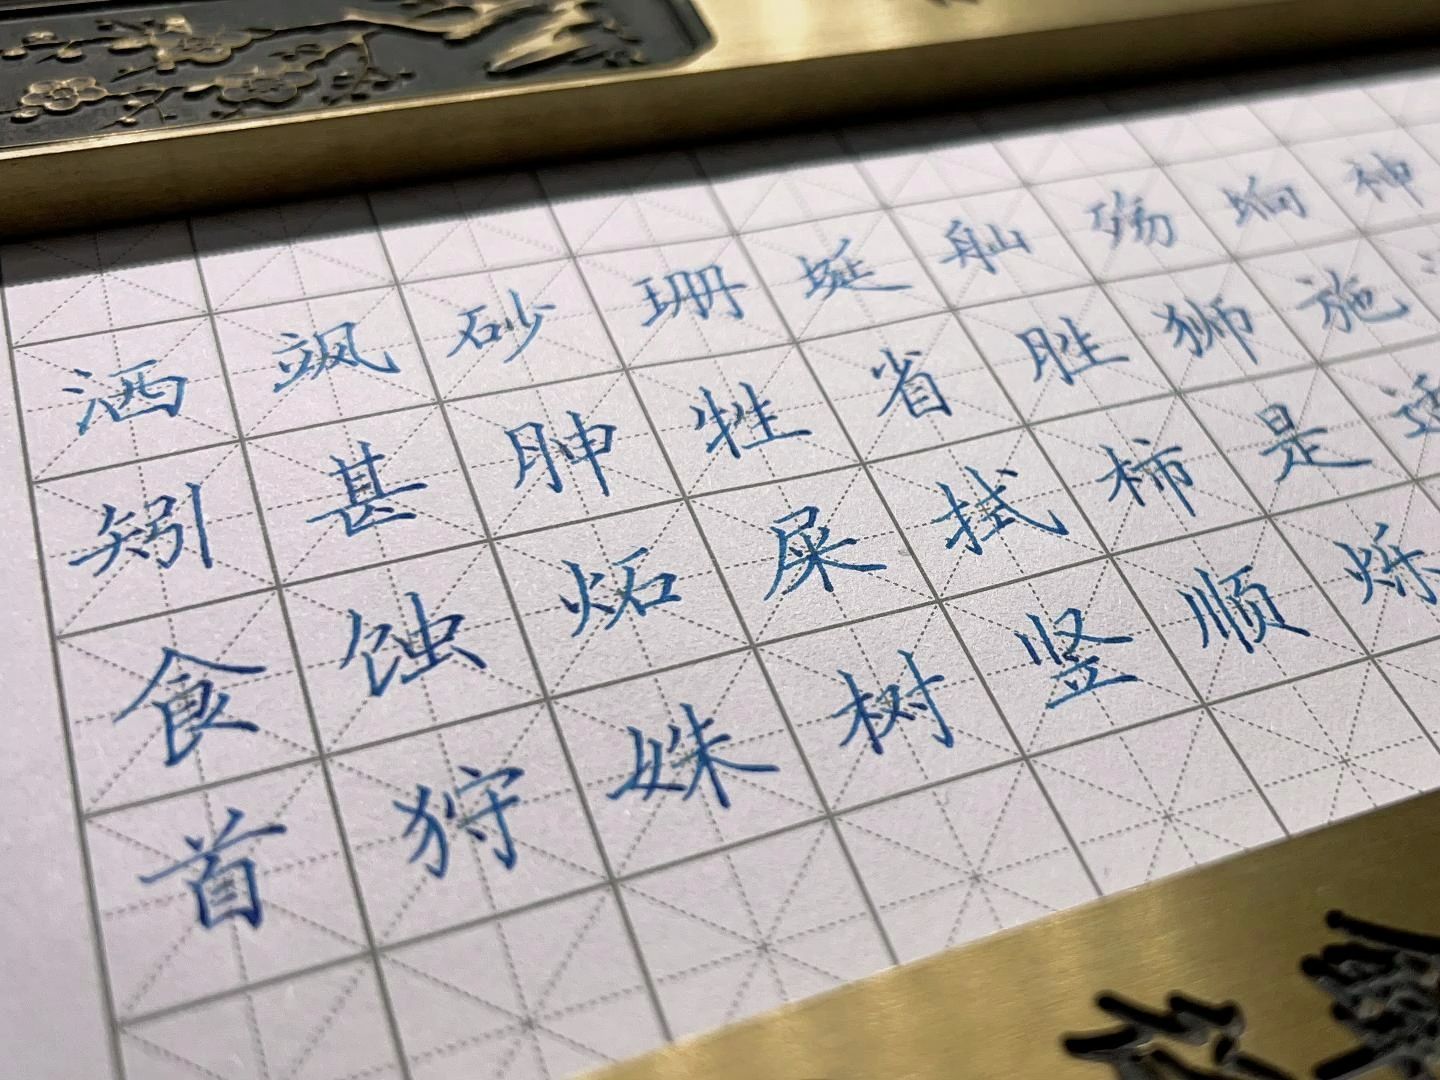 洒飒砂珊埏舢殇晌神
矧甚胂牲省胜狮施
食蚀炻屎拭柿是适
首狩姝树竖顺烁